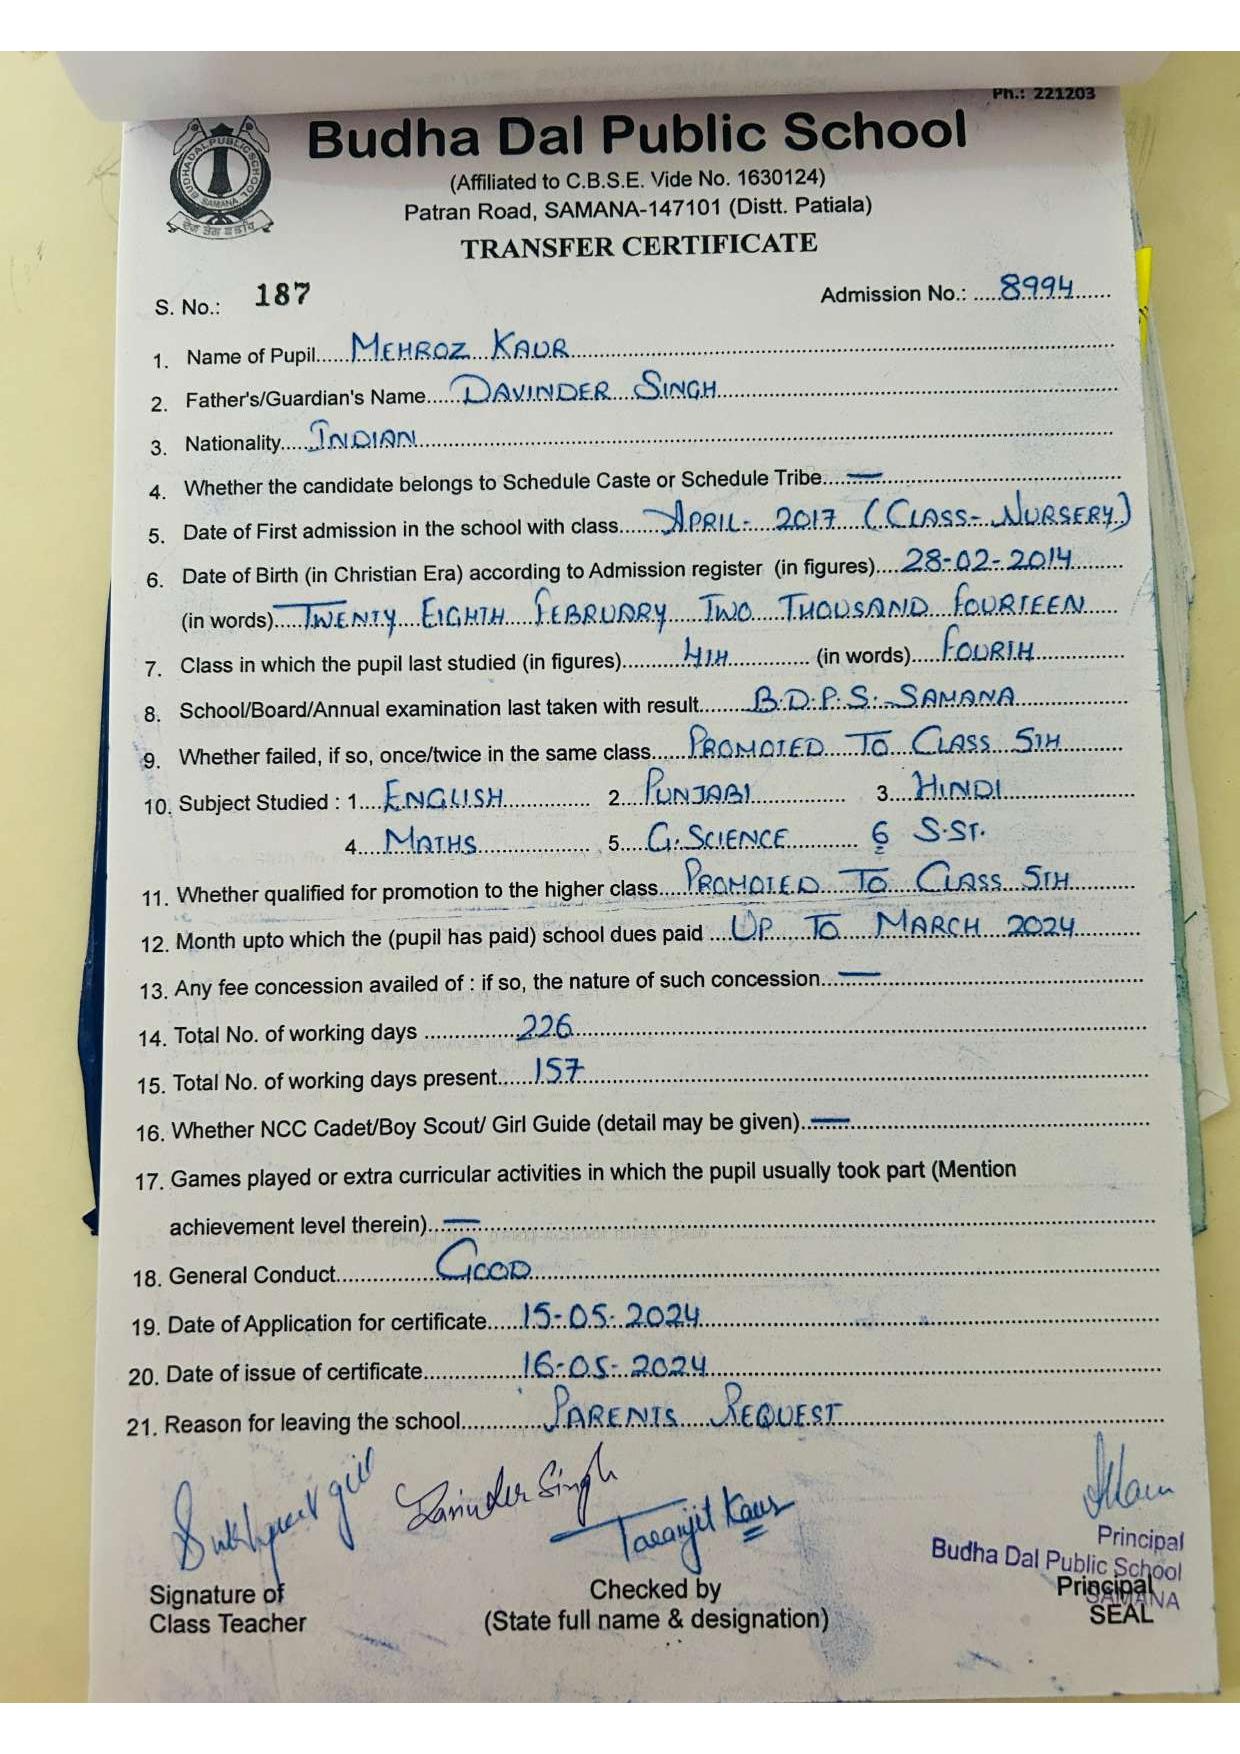 Ph.: 221203
BUDHA DAL PUBLIC SCHOOL
SAMANA
Budha Dal Public School
(Affiliated to C.B.S.E. Vide No. 1630124)
Patran Road, SAMANA-147101 (Distt. Patiala)
TRANSFER CERTIFICATE
S. No.: 187 Admission No.: 8994
1. Name of Pupil MEHROZ KAUR
2. Father's/Guardian's Name DAVINDER SINGH
3. Nationality INDIAN
4. Whether the candidate belongs to Schedule Caste or Schedule Tribe —
5. Date of First admission in the school with class APRIL- 2017 (CLASS- NURSERY)
6. Date of Birth (in Christian Era) according to Admission register (in figures) 28-02-2014
(in words) TWENTY EIGHTH FEBRUARY TWO THOUSAND FOURTEEN
7. Class in which the pupil last studied (in figures) 4TH (in words) FOURTH
8. School/Board/Annual examination last taken with result B.D.P.S. SAMANA
9. Whether failed, if so, once/twice in the same class PROMOTED TO CLASS 5TH
10. Subject Studied : 1. ENGLISH 2. PUNJABI 3. HINDI
4. MATHS 5. G.SCIENCE 6 S.ST.
11. Whether qualified for promotion to the higher class PROMOTED TO CLASS 5TH
12. Month upto which the (pupil has paid) school dues paid UP TO MARCH 2024
13. Any fee concession availed of : if so, the nature of such concession —
14. Total No. of working days 226
15. Total No. of working days present 157
16. Whether NCC Cadet/Boy Scout/ Girl Guide (detail may be given) —
17. Games played or extra curricular activities in which the pupil usually took part (Mention
achievement level therein) —
18. General Conduct GOOD
19. Date of Application for certificate 15-05-2024
20. Date of issue of certificate 16-05-2024
21. Reason for leaving the school PARENTS REQUEST
gill Singh Taranjit Kaur
Principal
Budha Dal Public School
SAMANA
Signature of Checked by Principal
Class Teacher (State full name & designation) SEAL